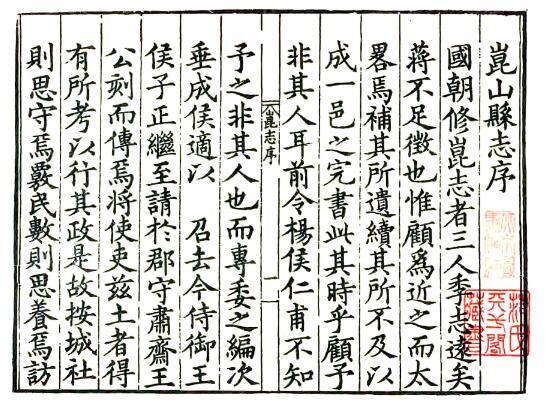 崑山縣志序
國朝修崑志者三人季志遠矣
蔣不足徵也惟顧爲近之而太
畧焉補其所遺續其所不及以
成一邑之完書此其時乎顧予
非其人耳前令楊侯仁甫不知
崑志序
一
予之非其人也而專委之編次
垂成侯適以 召去今侍御王
侯子正繼至請於郡守肅齋王
公刻而傳焉將使吏茲土者得
有所考以行其政是故按城社
則思守焉覈民數則思養焉訪